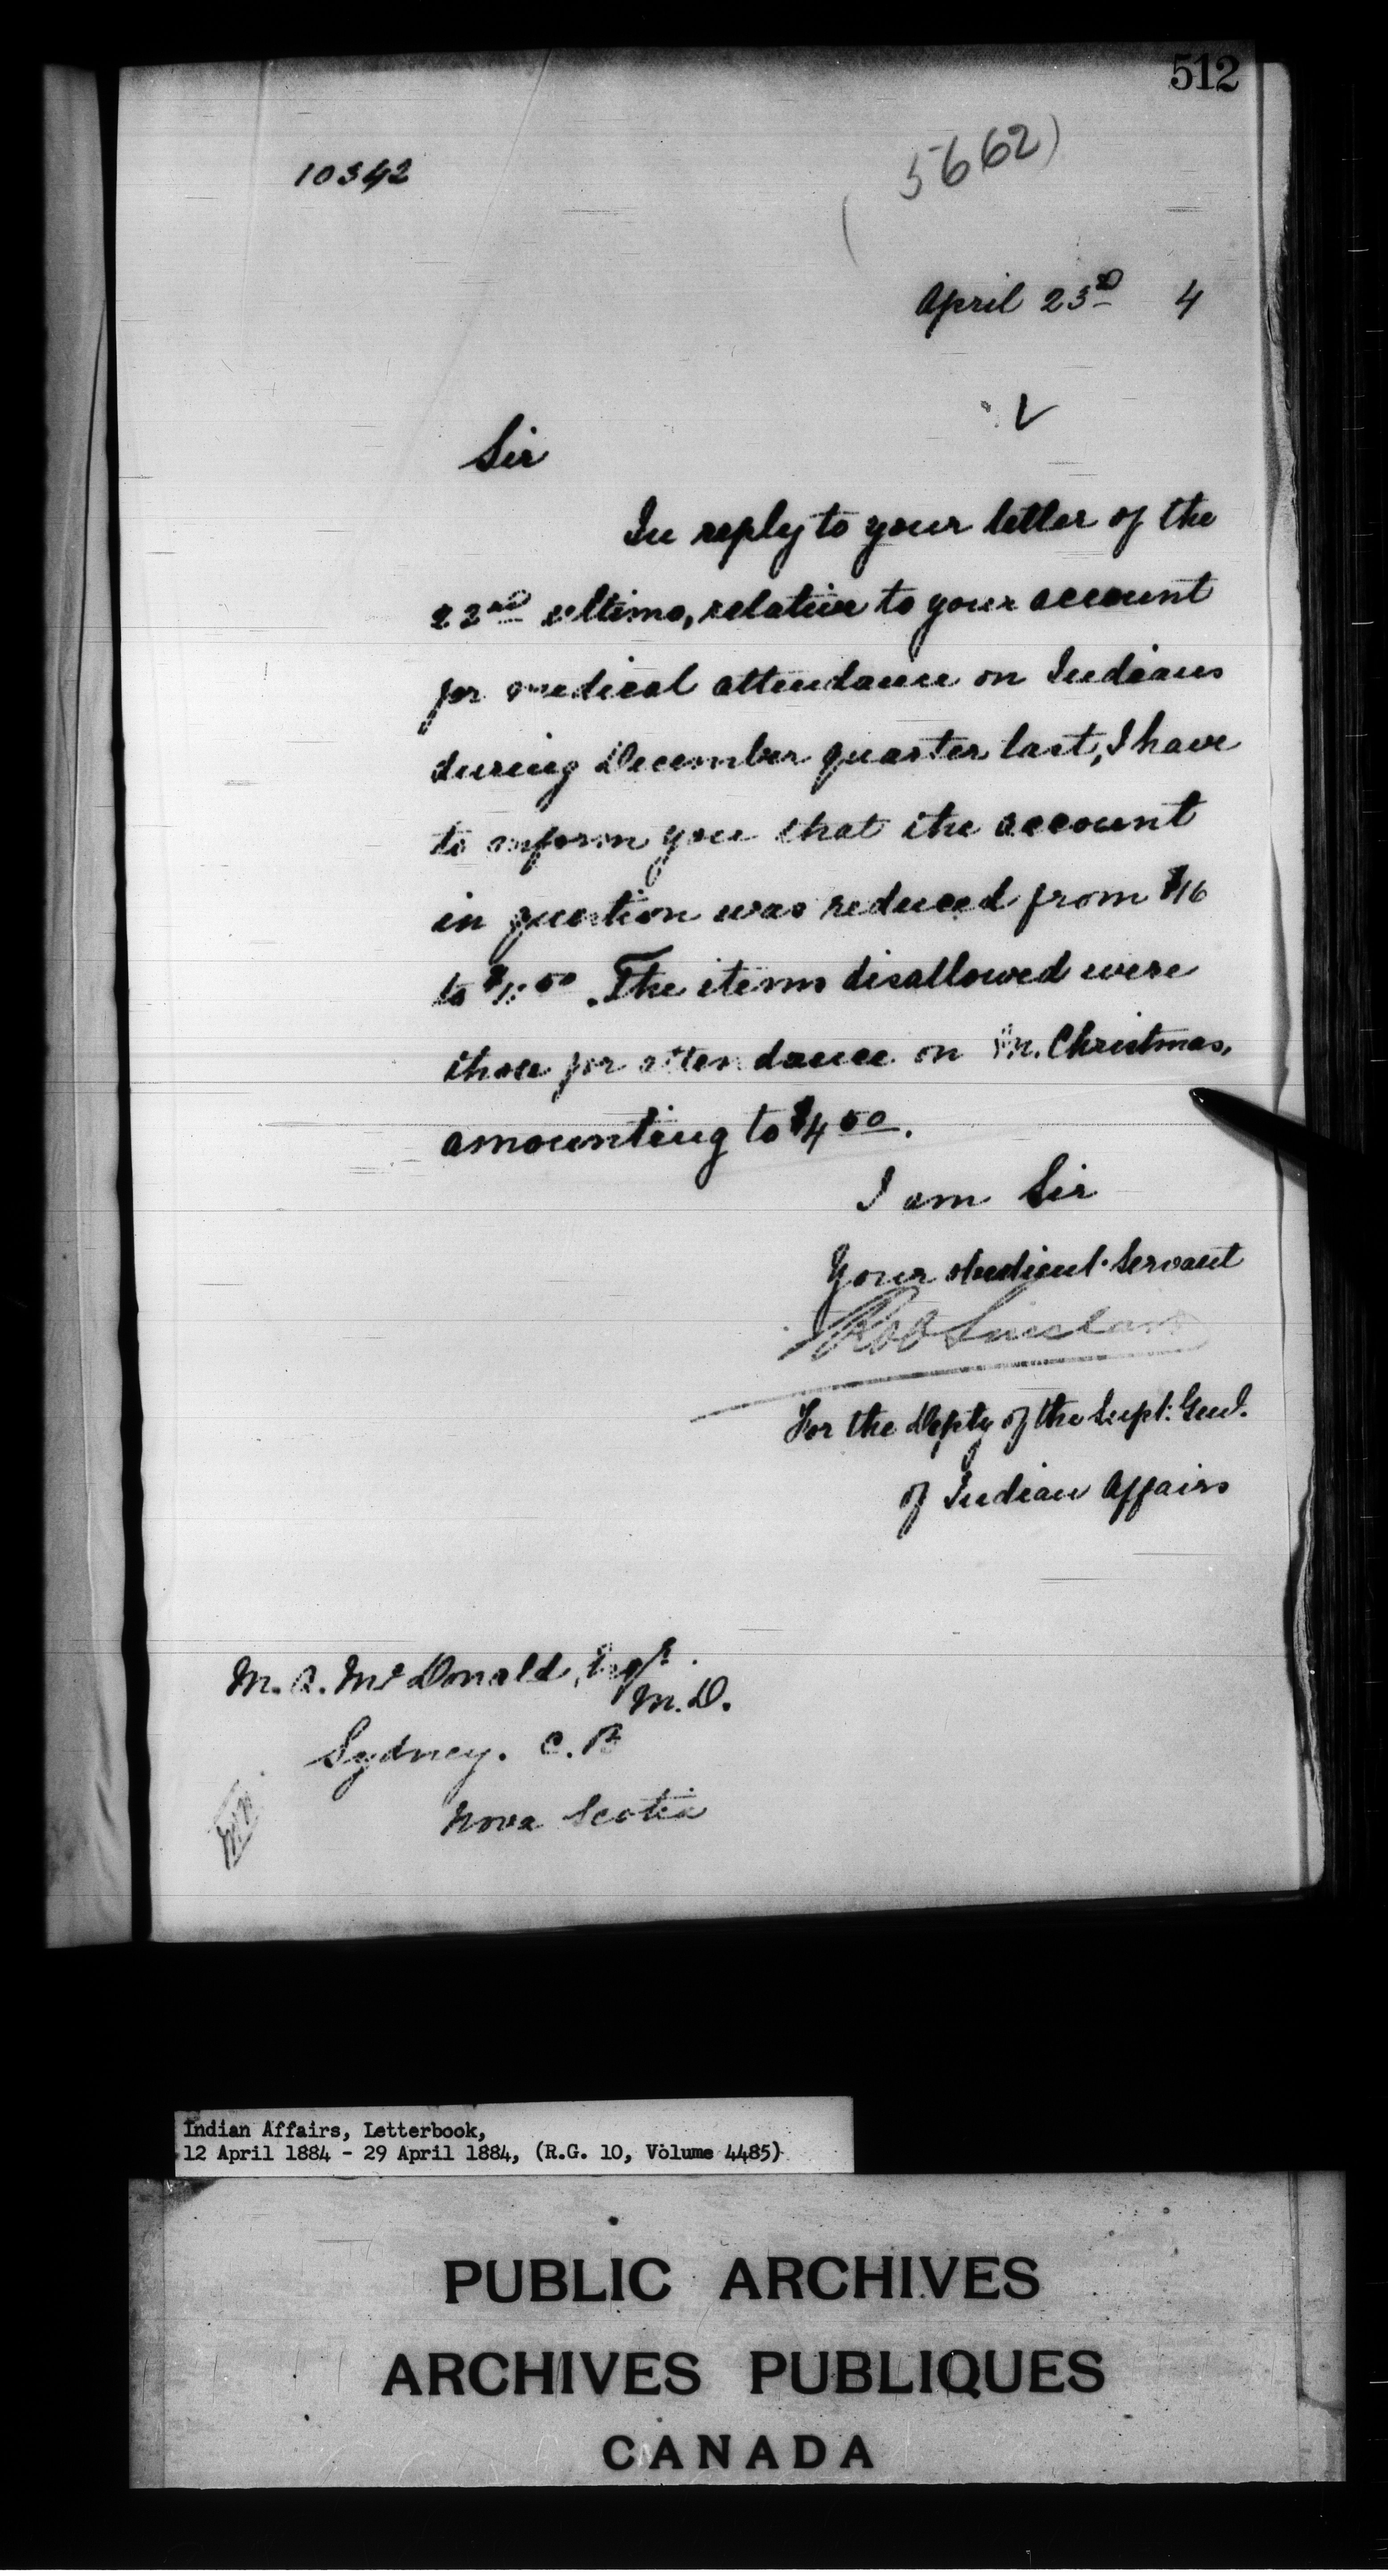 512
10342
(5662)
April 23D 4
Sir
In reply to your letter of the
22nd ultimo, relative to your account
for medical attendance on Indians
during December quarter last, I have
to inform you that the account
in question was reduced from $16
to $11 50. The items disallowed were
those for attendance on Christmas,
amounting to $4 50.
I am Sir
Your obedient Servant
Rob Sinclair
For the Depty of the Supt. Genl.
of Indian Affairs
M. A. McDonald, Esqr.
M.D.
Sydney. C. B
Nova Scotia
Indian Affairs, Letterbook,
12 April 1884 - 29 April 1884, (R.G. 10, Volume 4485)
PUBLIC ARCHIVES
ARCHIVES PUBLIQUES
CANADA